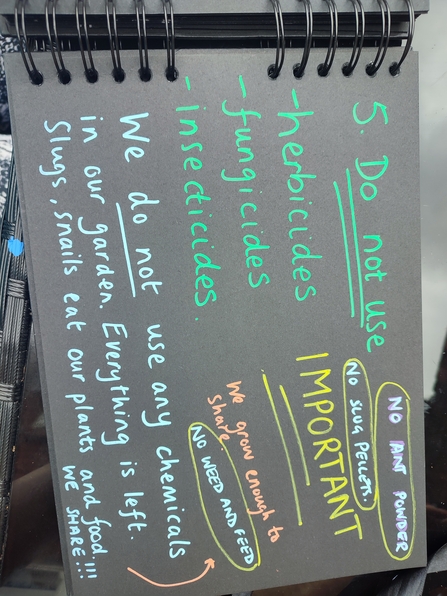 NO ANT POWDER
5. Do not use
NO SLUG PELLETS.
-herbicides
IMPORTANT
-fungicides
-insecticides.
We grow enough to
share.
NO WEED AND FEED
We do not use any chemicals
in our garden. Everything is left.
Slugs, snails eat our plants and food!!!
WE SHARE!!!